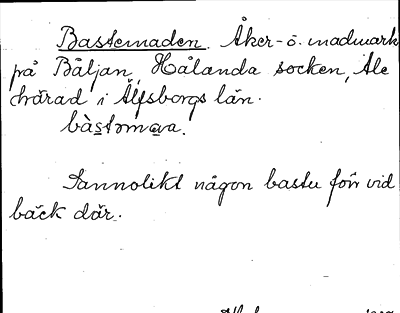 Bastemaden. Åker- o. madmark
på Bäljan, Hålanda socken, Ale
härad i Älfsborgs län.
bàstəmava.
Sannolikt någon bastu förr vid
bäck där.